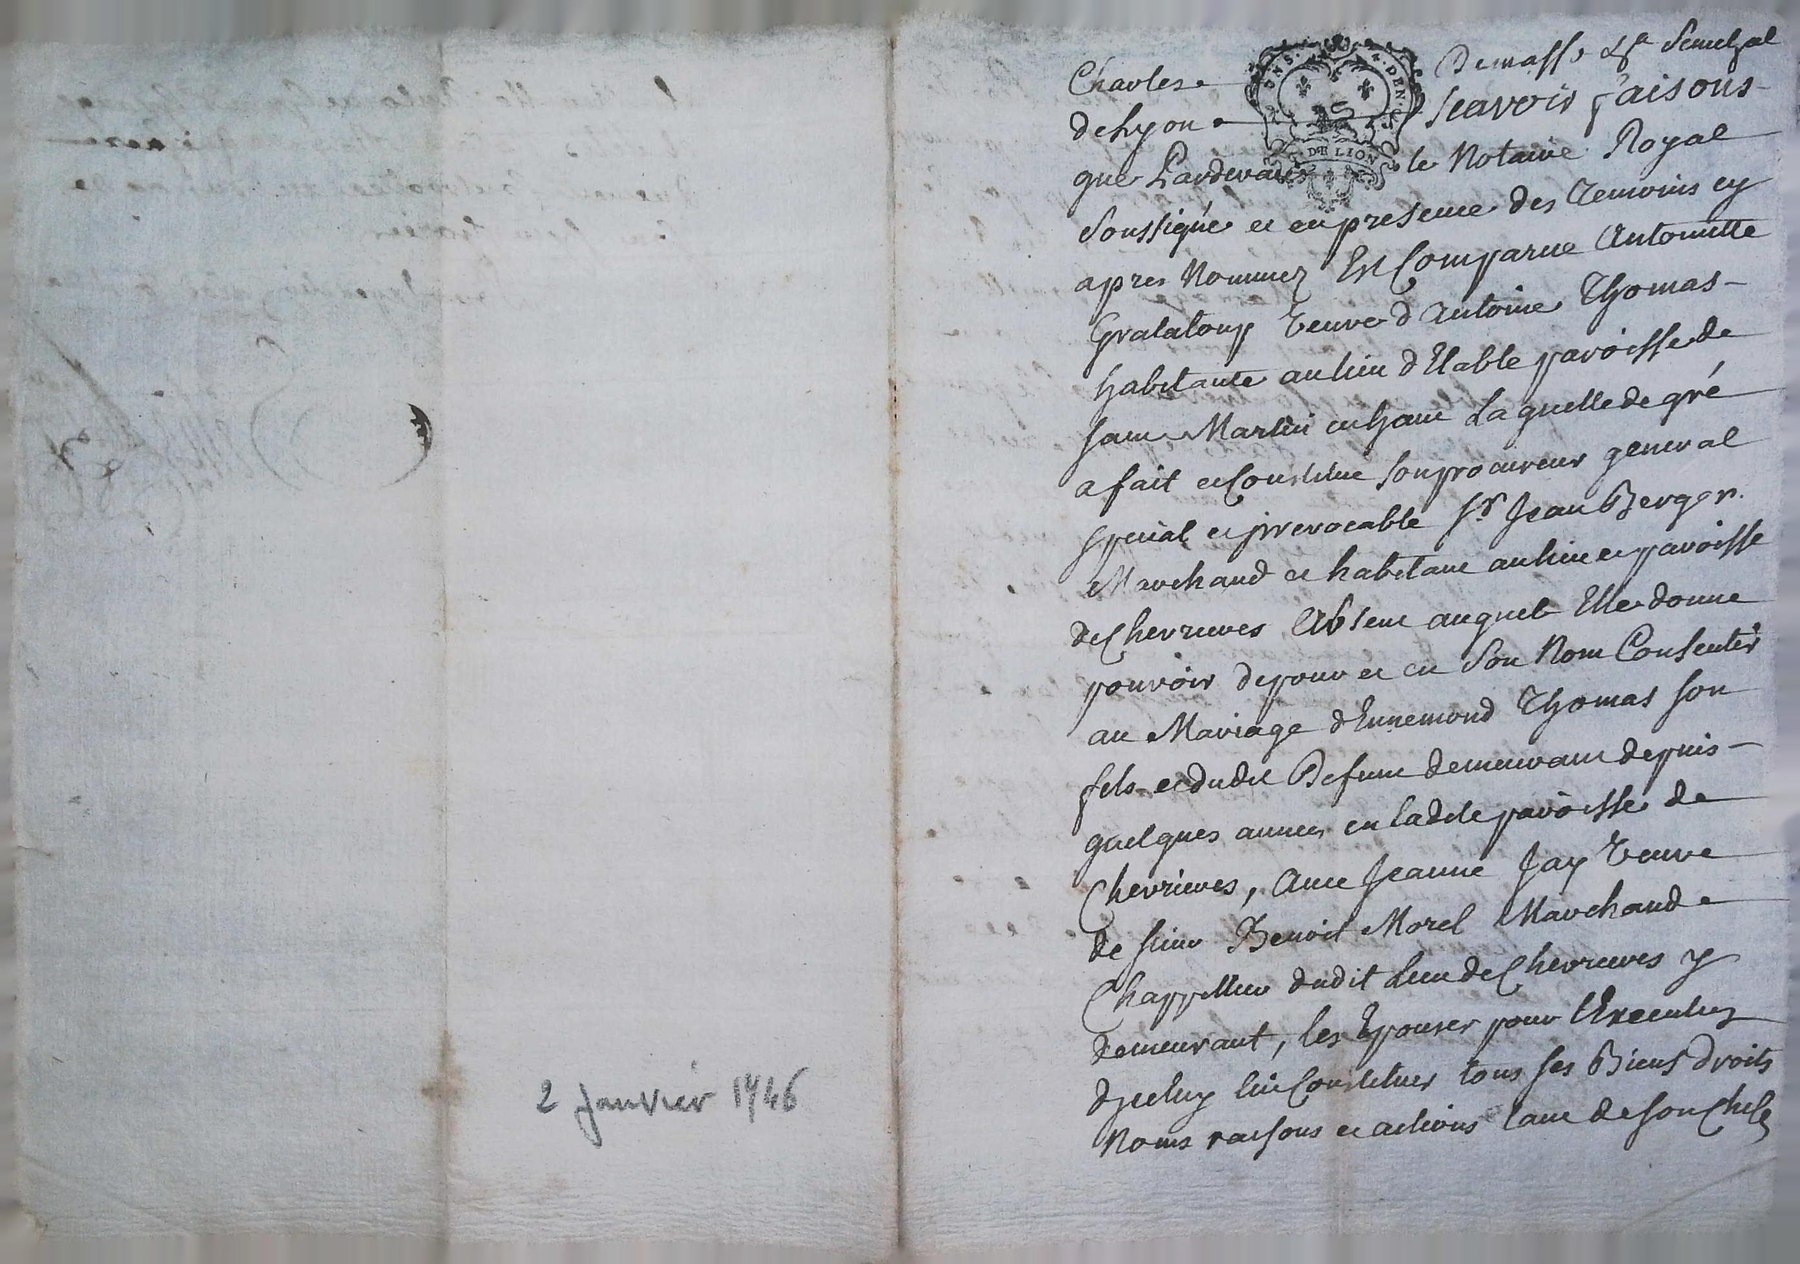 2 janvier 1746
Charles Demasso &a Senechal
de Lyon Scavoir faisons
DE LION
que Pardevant le Notaire Royal
Soussigné et en presence des Temoins cy
apres Nommez Est Comparue Antoinette
Grataloup Veuve d'Antoine Thomas
habitante au lieu d'Etable paroisse de
saint Martin en haut Laquelle de gré
a fait et Constitué son procureur general
special et irrevocable Sr. Jean Berger
Marchand et habitant au lieu et paroisse
de Chevrieres Absent auquel Elle donne
pouvoir de pour et en son Nom Consentir
au Mariage d'Ennemond Thomas son
fils et dudit Defunt demeurant depuis
quelques années en Ladite paroisse de
Chevrieres, avec Jeanne Jay Veuve
de sieur Benoit Morel Marchand
Chappellier dudit Lieu de Chevrieres y
demeurant, les Epouser pour L'Execution
d'yceluy lui Constituer tous ses Biens droits
Noms raisons et actions tant de son Chefs